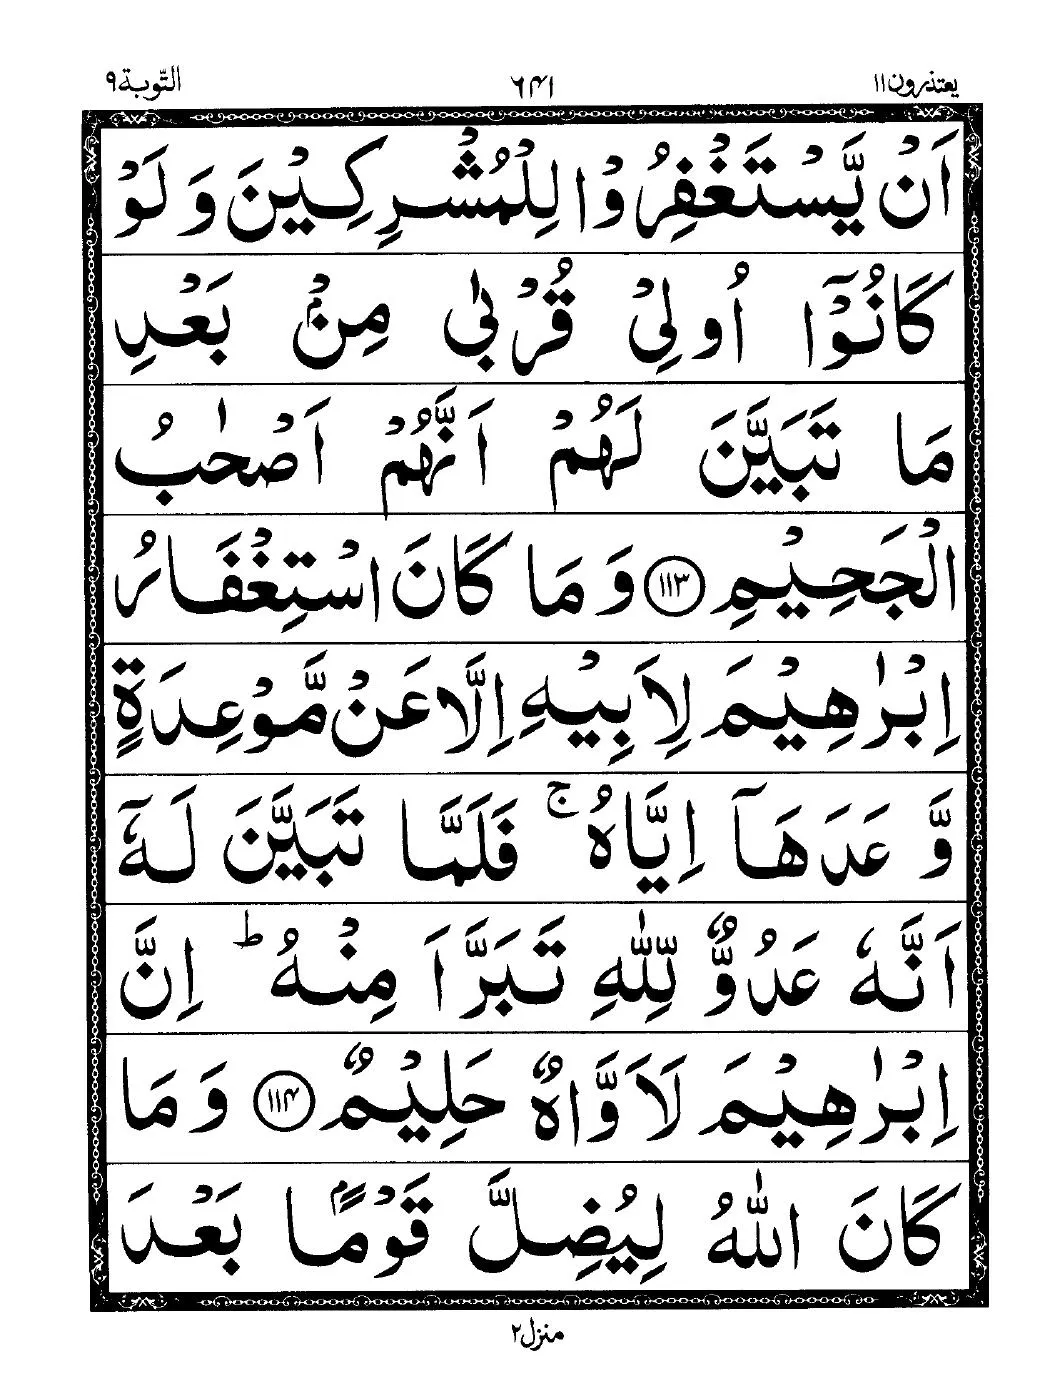 یعتذرون۱۱ ۶۴۱ التّوبة۹
اَنْ يَّسْتَغْفِرُوْا لِلْمُشْرِكِيْنَ وَ لَوْ
كَانُوْۤا اُولِیْ قُرْبٰى مِنْۢ بَعْدِ
مَا تَبَيَّنَ لَهُمْ اَنَّهُمْ اَصْحٰبُ
الْجَحِيْمِ ۝۱۱۳ وَ مَا كَانَ اسْتِغْفَارُ
اِبْرٰهِيْمَ لِاَبِيْهِ اِلَّا عَنْ مَّوْعِدَةٍ
وَّ عَدَهَاۤ اِيَّاهُ ۚ فَلَمَّا تَبَيَّنَ لَهٗۤ
اَنَّهٗ عَدُوٌّ لِّلّٰهِ تَبَرَّاَ مِنْهُ ؕ اِنَّ
اِبْرٰهِيْمَ لَاَوَّاهٌ حَلِيْمٌ ۝۱۱۴ وَ مَا
كَانَ اللّٰهُ لِيُضِلَّ قَوْمًۢا بَعْدَ
منزل۲